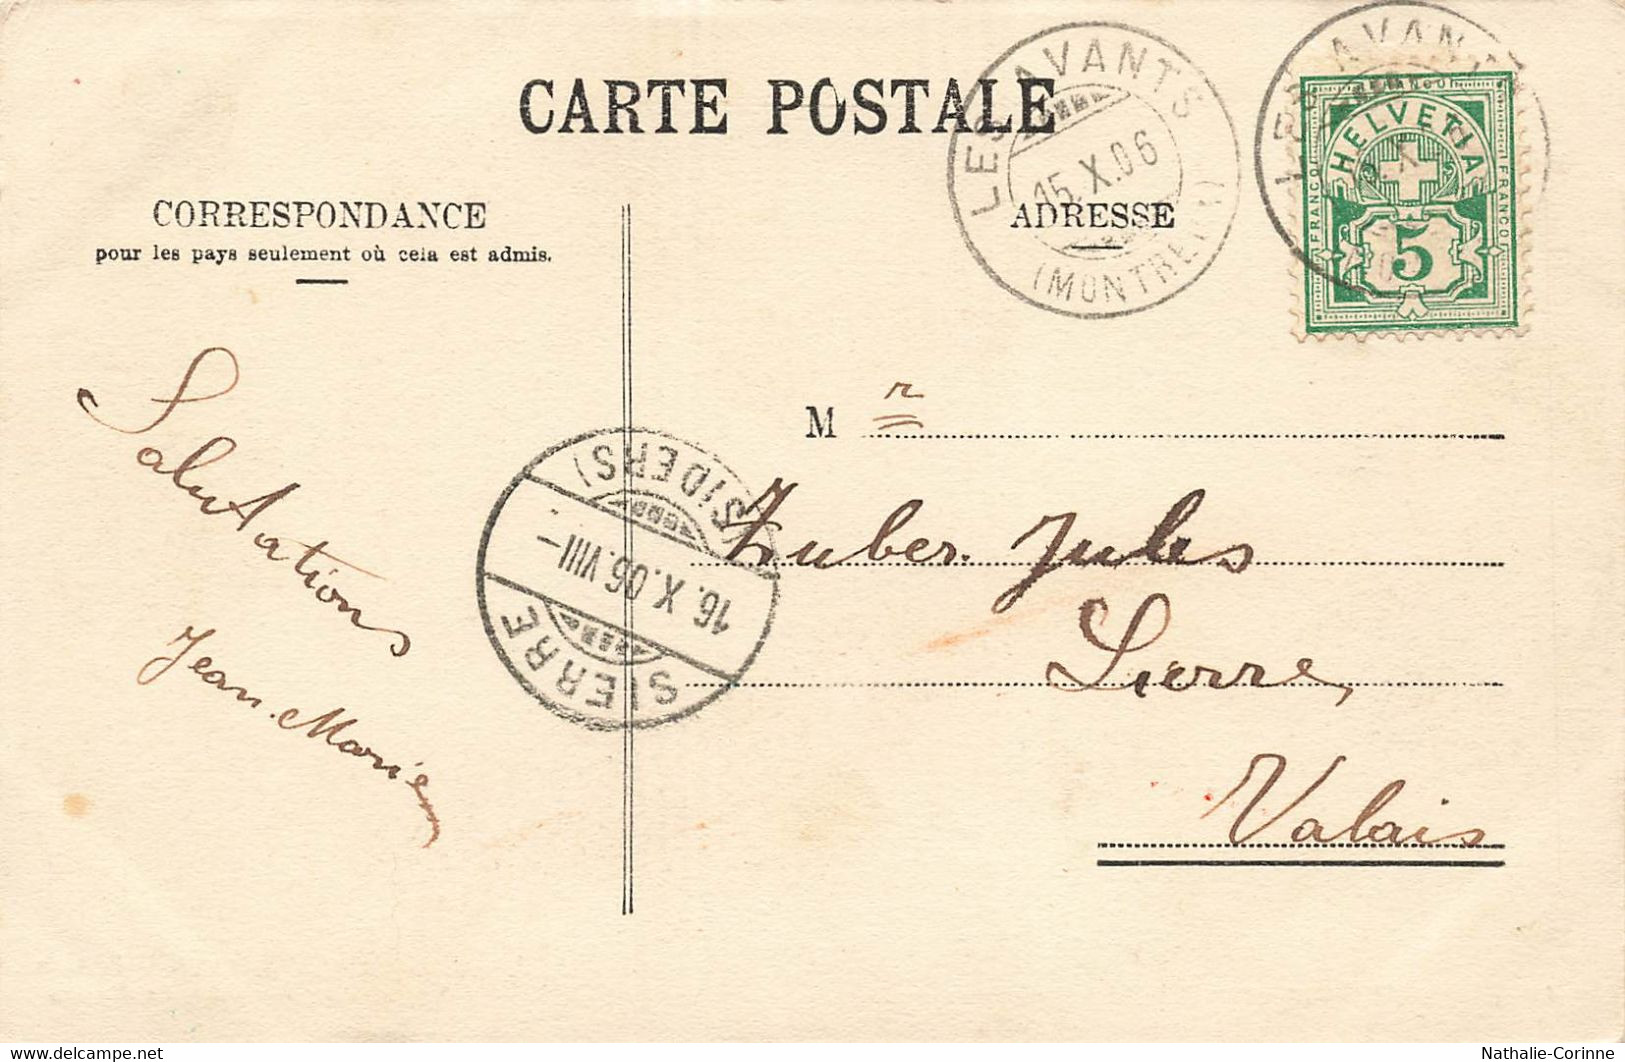 CARTE POSTALE
CORRESPONDANCE
pour les pays seulement où cela est admis.
ADRESSE
LES AVANTS
15.X.06
(MONTREUX)
HELVETIA
FRANCO
FRANCO
5
Salutations
Jean-Marie
SIERRE
16.X.06.VIII–
(SIDERS)
M r
Zuber Jules
Sierre,
Valais
delcampe.net
Nathalie-Corinne